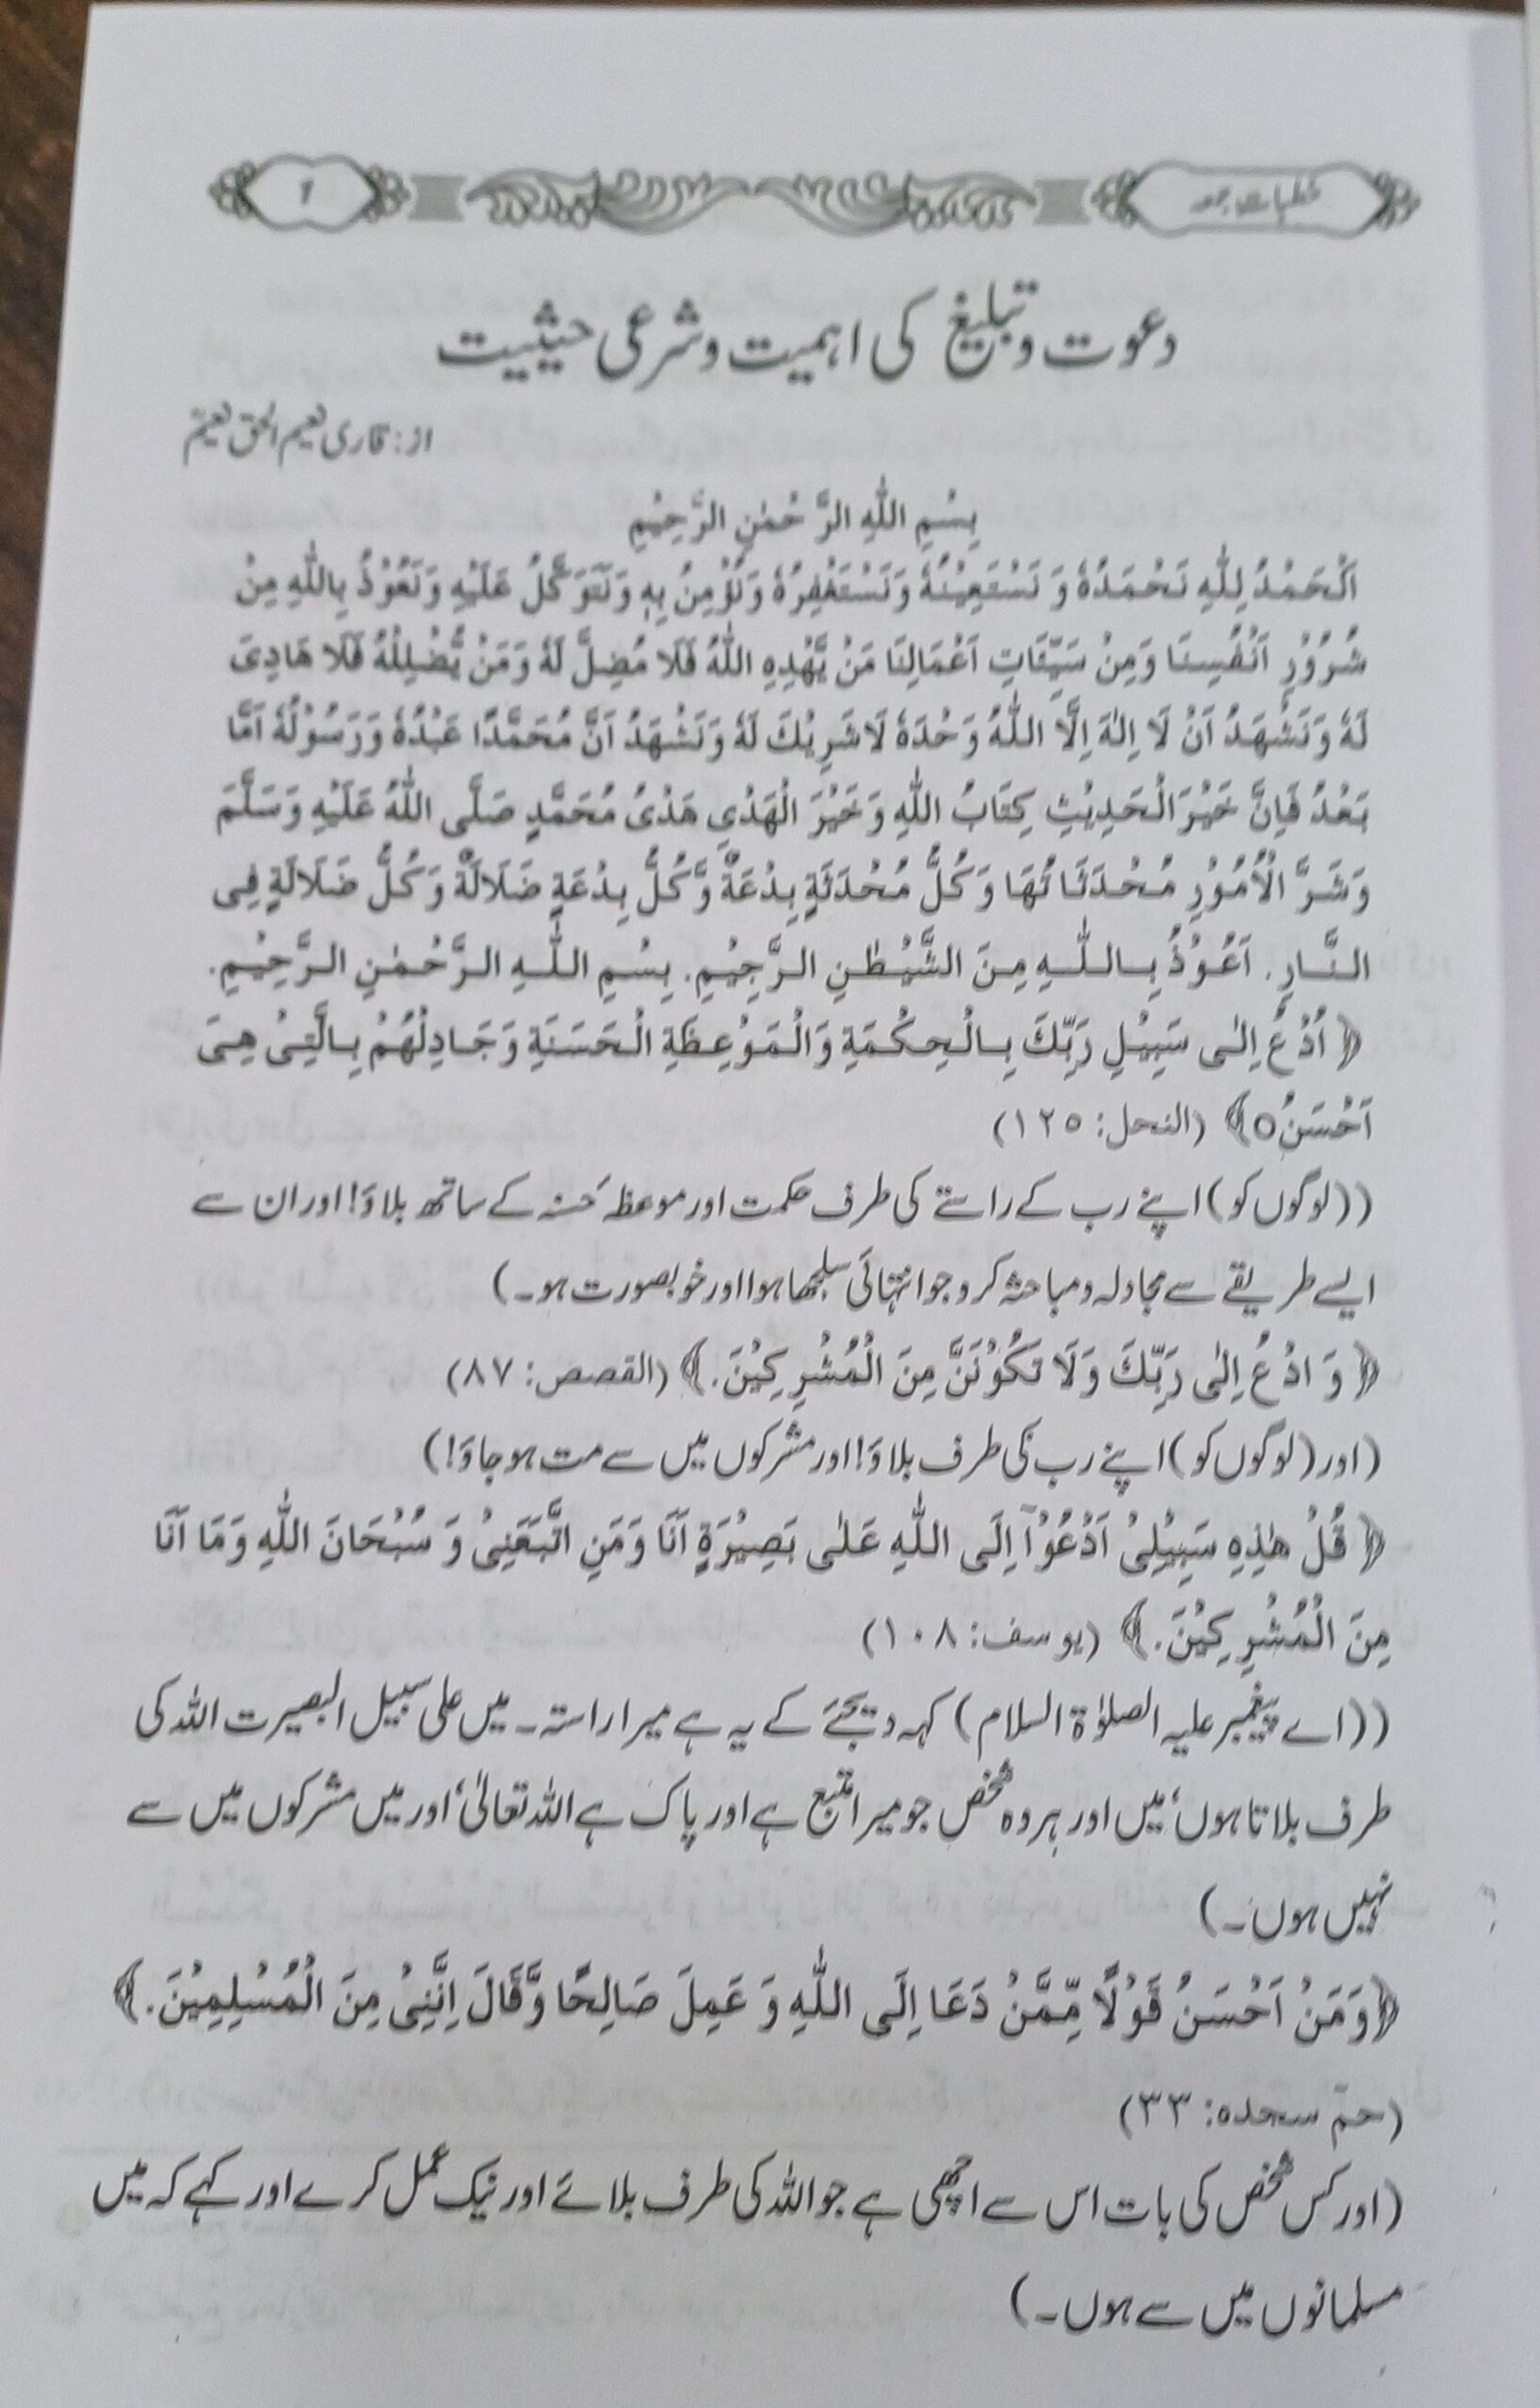 خطبات جمعہ
۱
دعوت و تبلیغ کی اہمیت و شرعی حیثیت
از: قاری نعیم الحق نعیم
بِسْمِ اللّٰهِ الرَّحْمٰنِ الرَّحِيْمِ
اَلْحَمْدُ لِلّٰهِ نَحْمَدُهٗ وَ نَسْتَعِيْنُهٗ وَنَسْتَغْفِرُهٗ وَنُؤْمِنُ بِهٖ وَنَتَوَكَّلُ عَلَيْهِ وَنَعُوْذُ بِاللّٰهِ مِنْ
شُرُوْرِ اَنْفُسِنَا وَمِنْ سَيِّئَاتِ اَعْمَالِنَا مَنْ يَّهْدِهِ اللّٰهُ فَلَا مُضِلَّ لَهٗ وَمَنْ يُّضْلِلْهُ فَلَا هَادِىَ
لَهٗ وَنَشْهَدُ اَنْ لَا اِلٰهَ اِلَّا اللّٰهُ وَحْدَهٗ لَا شَرِيْكَ لَهٗ وَنَشْهَدُ اَنَّ مُحَمَّدًا عَبْدُهٗ وَرَسُوْلُهٗ اَمَّا
بَعْدُ فَاِنَّ خَيْرَ الْحَدِيْثِ كِتَابُ اللّٰهِ وَخَيْرَ الْهَدْىِ هَدْىُ مُحَمَّدٍ صَلَّى اللّٰهُ عَلَيْهِ وَسَلَّمَ
وَشَرَّ الْاُمُوْرِ مُحْدَثَاتُهَا وَكُلُّ مُحْدَثَةٍ بِدْعَةٌ وَّكُلُّ بِدْعَةٍ ضَلَالَةٌ وَكُلُّ ضَلَالَةٍ فِى
النَّارِ. اَعُوْذُ بِاللّٰهِ مِنَ الشَّيْطٰنِ الرَّجِيْمِ. بِسْمِ اللّٰهِ الرَّحْمٰنِ الرَّحِيْمِ.
﴿اُدْعُ اِلٰى سَبِيْلِ رَبِّكَ بِالْحِكْمَةِ وَالْمَوْعِظَةِ الْحَسَنَةِ وَجَادِلْهُمْ بِالَّتِىْ هِىَ
اَحْسَنُ ٥﴾ (النحل: ١٢٥)
((لوگوں کو) اپنے رب کے راستے کی طرف حکمت اور موعظہ حسنہ کے ساتھ بلاؤ! اور ان سے
ایسے طریقے سے مجادلہ و مباحثہ کرو جو انتہائی سلجھا ہوا اور خوبصورت ہو۔)
﴿وَ ادْعُ اِلٰى رَبِّكَ وَلَا تَكُوْنَنَّ مِنَ الْمُشْرِكِيْنَ.﴾ (القصص: ٨٧)
(اور (لوگوں کو) اپنے رب کی طرف بلاؤ! اور مشرکوں میں سے مت ہو جاؤ!)
﴿قُلْ هٰذِهٖ سَبِيْلِىْ اَدْعُوْآ اِلَى اللّٰهِ عَلٰى بَصِيْرَةٍ اَنَا وَمَنِ اتَّبَعَنِىْ وَ سُبْحَانَ اللّٰهِ وَمَا اَنَا
مِنَ الْمُشْرِكِيْنَ.﴾ (يوسف: ١٠٨)
((اے پیغمبر علیہ الصلوٰۃ السلام) کہہ دیجئے کے یہ ہے میرا راستہ۔ میں علی سبیل البصیرت اللہ کی
طرف بلاتا ہوں، میں اور ہر وہ شخص جو میرا متبع ہے اور پاک ہے اللہ تعالیٰ، اور میں مشرکوں میں سے
نہیں ہوں۔)
﴿وَمَنْ اَحْسَنُ قَوْلًا مِّمَّنْ دَعَا اِلَى اللّٰهِ وَ عَمِلَ صَالِحًا وَّقَالَ اِنَّنِىْ مِنَ الْمُسْلِمِيْنَ.﴾
(حمٓ سجدہ: ٣٣)
(اور کس شخص کی بات اس سے اچھی ہے جو اللہ کی طرف بلائے اور نیک عمل کرے اور کہے کہ میں
مسلمانوں میں سے ہوں۔)